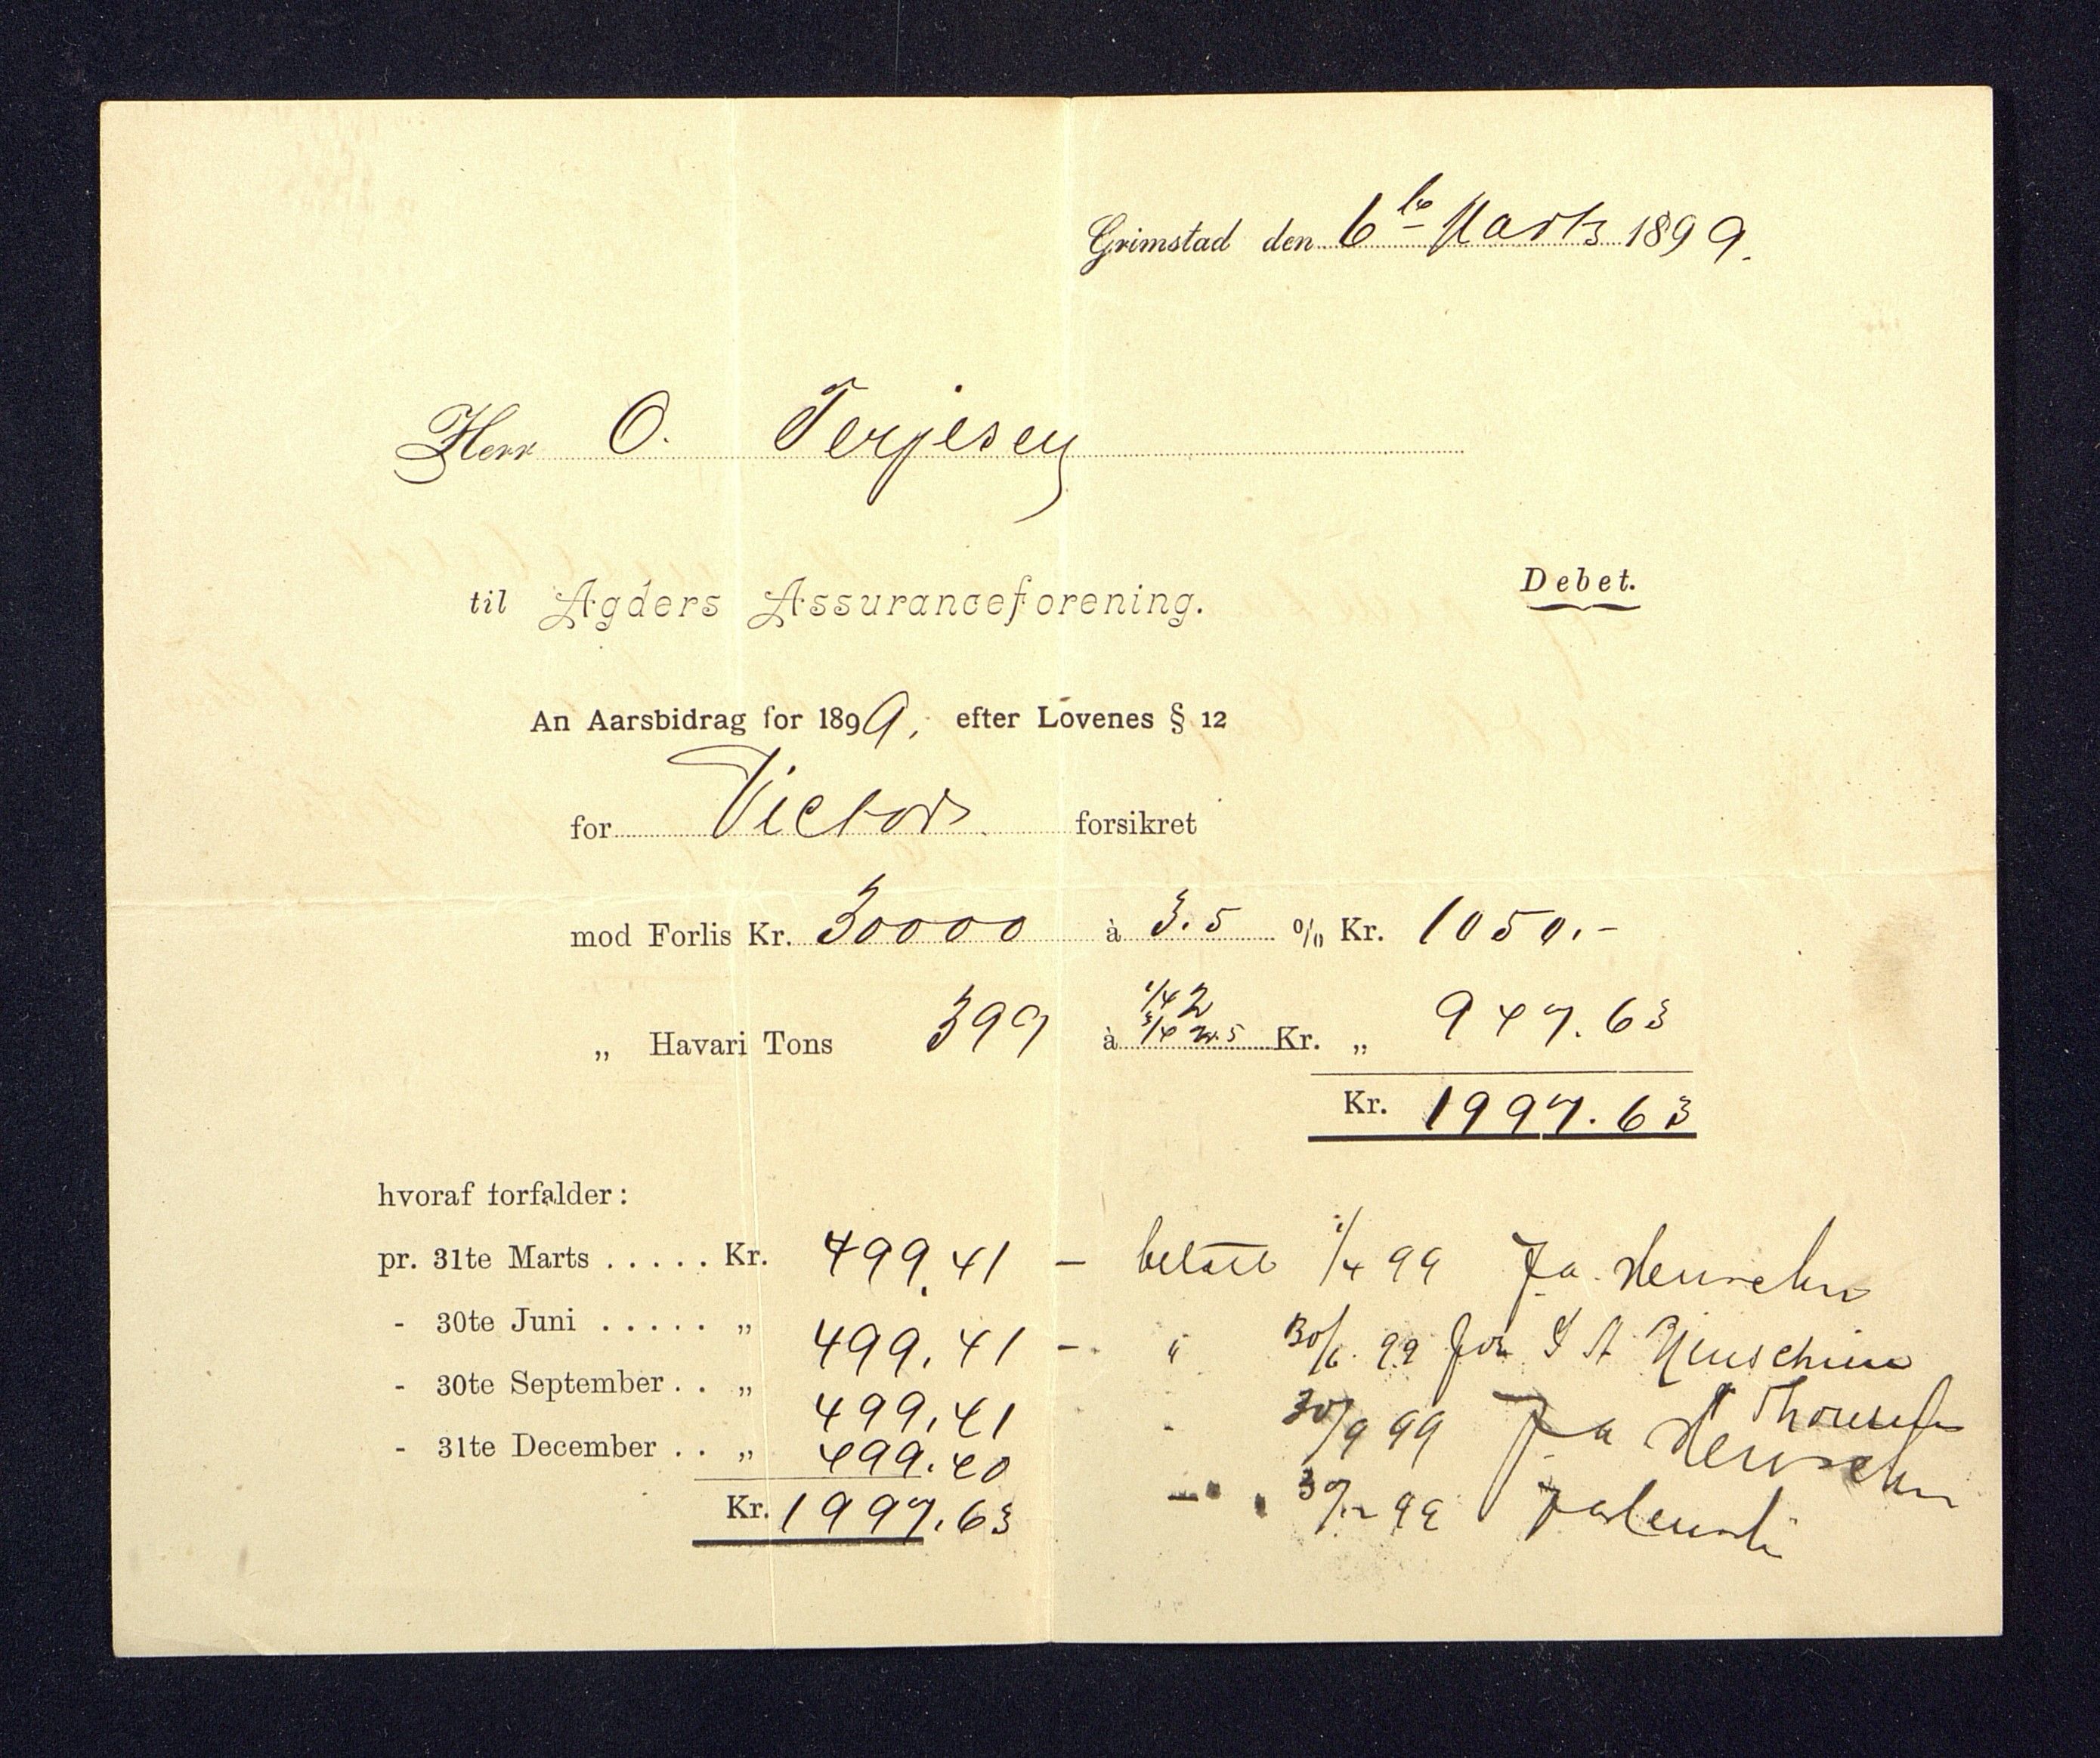 Grimstad den 6te Marts 1899.
Herr O. Terjesen
til Agders Assuranceforening. Debet.
An Aarsbidrag for 1899, efter Lovenes § 12
for Victor forsikret
mod Forlis Kr. 30000 à 3.5 % Kr. 1050.-
„ Havari Tons 399 à 1/4 2 3/4 2.5 Kr. „ 947.63
Kr. 1997.63
hvoraf forfalder:
pr. 31te Marts ..... Kr. 499.41 - betalt 1/4 99
- 30te Juni ..... „ 499.41 - " 30/6 99 for
- 30te September .. „ 499.41 - 30/9 99
- 31te December .. „ 499.40 - 99
Kr. 1997.63